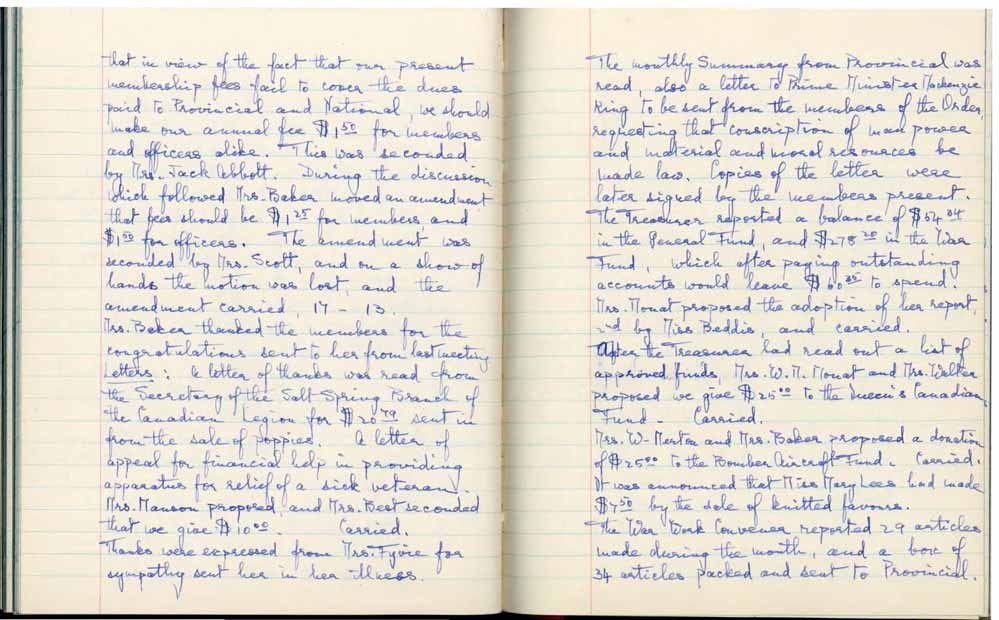 that in view of the fact that our present
membership fees fail to cover the dues
paid to Provincial and National, we should
make our annual fee $1.50 for members
and officers alike. This was seconded
by Mrs. Jack Abbott. During the discussion
which followed Mrs. Baker moved an amendment
that fees should be $1.25 for members, and
$1.50 for officers. The amendment was
seconded by Mrs. Scott, and on a show of
hands the motion was lost, and the
amendment carried, 17 - 13.
Mrs. Baker thanked the members for the
congratulations sent to her from last meeting
Letters: A letter of thanks was read from
the Secretary of the Salt Spring Branch of
the Canadian Legion for $20.79 sent in
from the sale of poppies. A letter of
appeal for financial help in providing
apparatus for relief of a sick veteran.
Mrs. Manson proposed, and Mrs. Best seconded
that we give $10.00. Carried.
Thanks were expressed from Mrs. Fyvie for
sympathy sent her in her illness.
The monthly Summary from Provincial was
read, also a letter to Prime Minister Mackenzie
King to be sent from the members of the Order,
requesting that conscription of man power
and material and moral resources be
made law. Copies of the letter were
later signed by the members present.
The Treasurer reported a balance of $54.34
in the General Fund, and $278.20 in the War
Fund, which after paying outstanding
accounts would leave $60.35 to spend.
Mrs. Mouat proposed the adoption of her report,
2nd by Miss Beddis, and carried.
After the Treasurer had read out a list of
approved funds, Mrs. W. M. Mouat and Mrs. Walter
proposed we give $25.00 to the Queen's Canadian
Fund - Carried.
Mrs. W-Merton and Mrs. Baker proposed a donation
of $25.00 to the Bomber Aircraft Fund. Carried.
It was announced that Miss Mary Lees had made
$7.50 by the sale of knitted favours.
The War Work Convener reported 29 articles
made during the month, and a box of
34 articles packed and sent to Provincial.